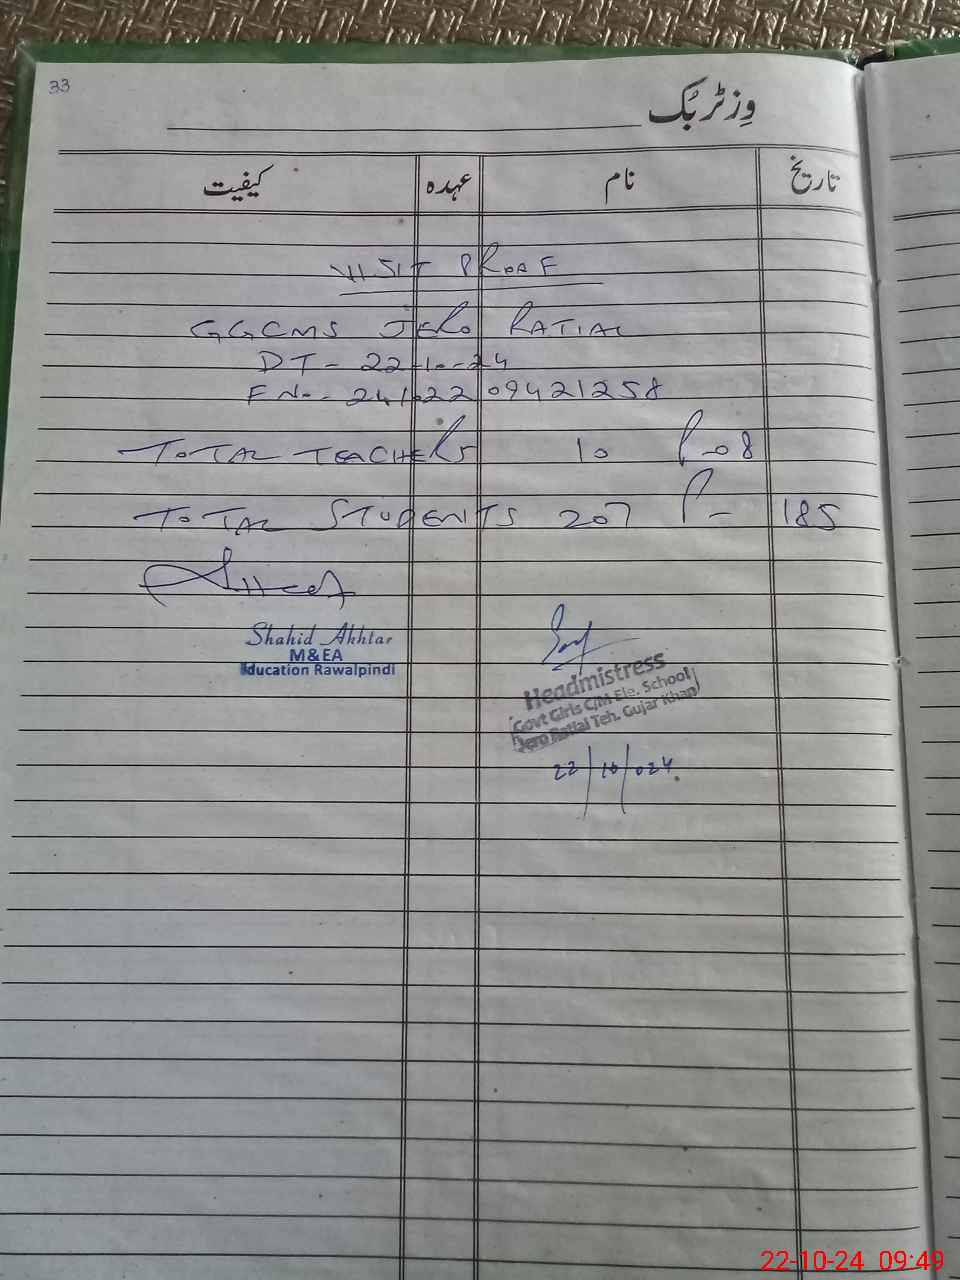 33
وِزٹر بُک
تاریخ نام عہدہ کیفیت
VISIT PROOF
GGCMS JERO RATIAL
DT- 22-10-24
FNo- 24102209421258
TOTAL TEACHERS 10 P-08
TOTAL STUDENTS 207 P- 185
Shahid Akhtar
M&EA
Education Rawalpindi
Headmistress
Govt Girls C/M Ele. School
Jero Ratial Teh. Gujar Khan
22/10/024
22-10-24 09:49